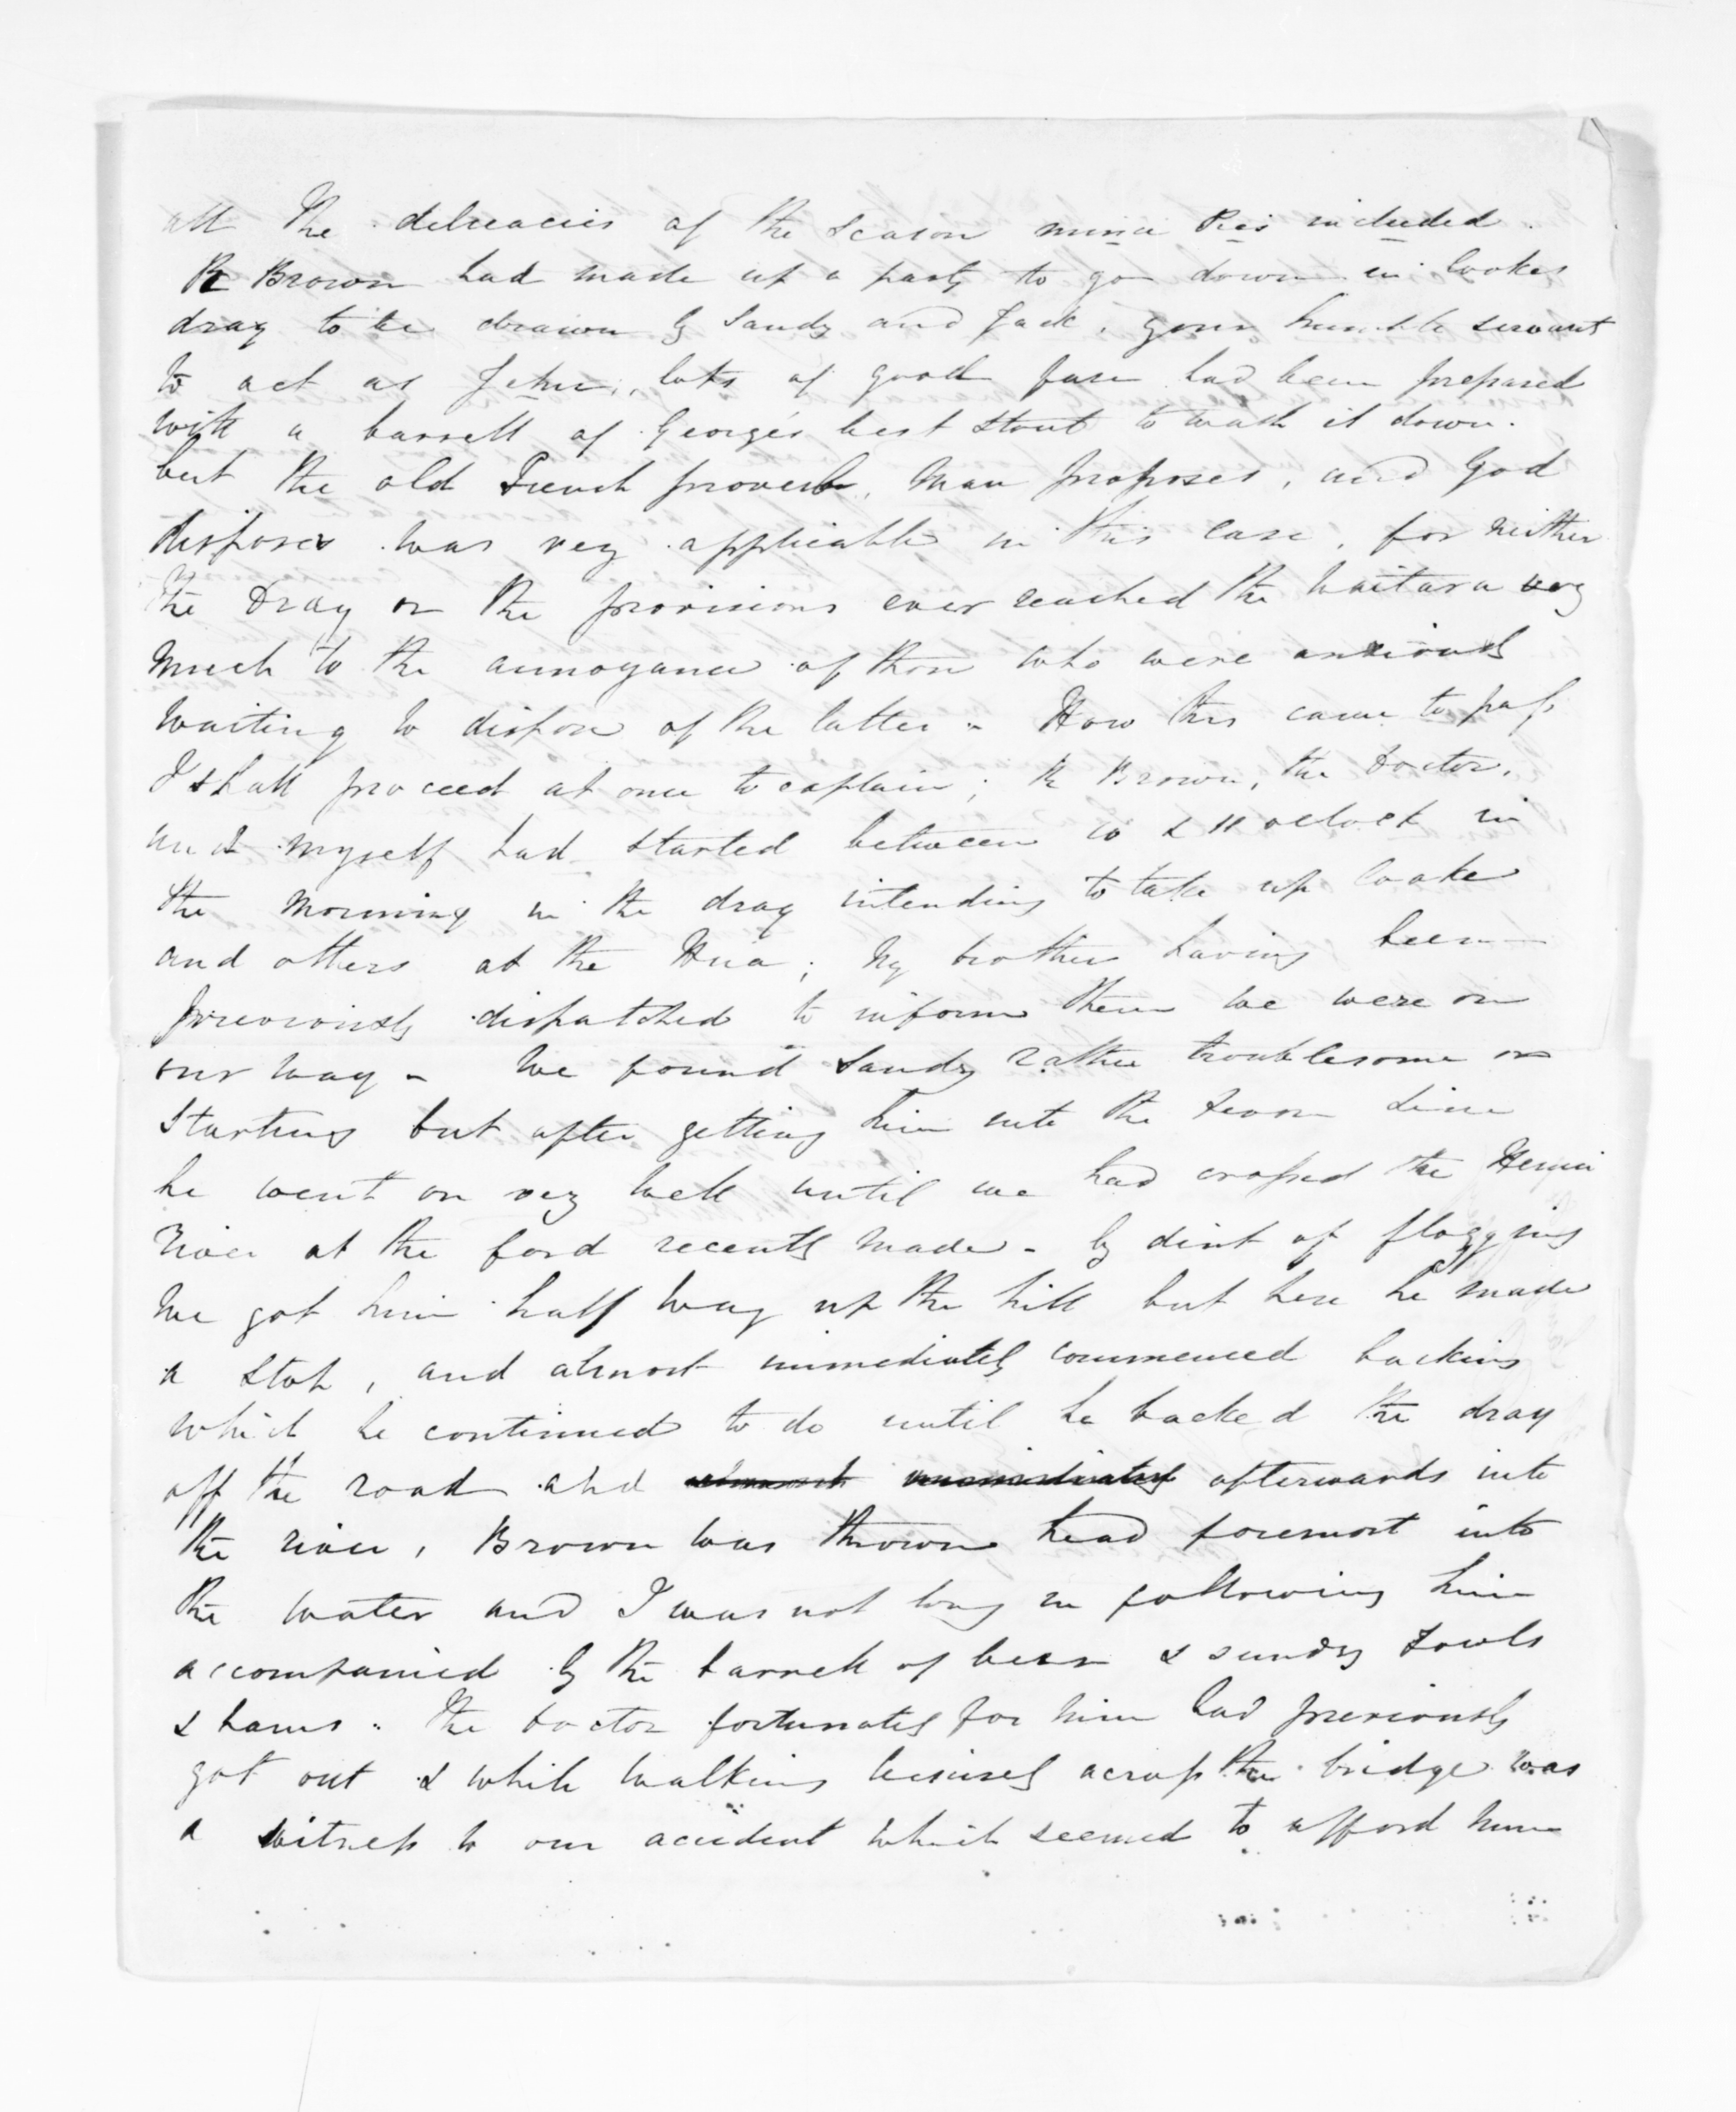 all the delicacies of the season mince Pies included.
R Brown had made up a party to go down in Cookes
dray to be drawn by Sandy and Jack, your humble servant
to act as Jehu, lots of good fare had been prepared
with a barrell of George's best Stout to wash it down.
but the old French proverb, Man proposes, and God
disposes was very applicable in this case, for neither
the Dray or the provisions ever reached the Waitara very
much to the annoyance of those who were anxiously
waiting to dispose of the latter - How this came to pass
I shall proceed at once to explain; R Brown, the Doctor,
and myself had started between 10 & 11 oclock in
the morning in the dray intending to take up Cooke
and others at the Hua; My brother having been
previously dispatched to inform them we were on
our way - We found Sandy rather troublesome on
Starting but after getting him into the
he went on very well until we had crossed the Henui
River at the ford recently made - by dint of flogging
we got him half way up the hill but here he made
a stop, and almost immediately commenced backing
which he continued to do until he backed the dray
off the road and almost immediately afterwards into
the river, Brown was thrown head foremost into
the water and I was not long in following him
accompanied by the barrell of beer & sundry Fowls
& hams. The Doctor fortunately for him had previously
got out & while walking leisurely across the bridge was
a witness to our accident which seemed to afford him